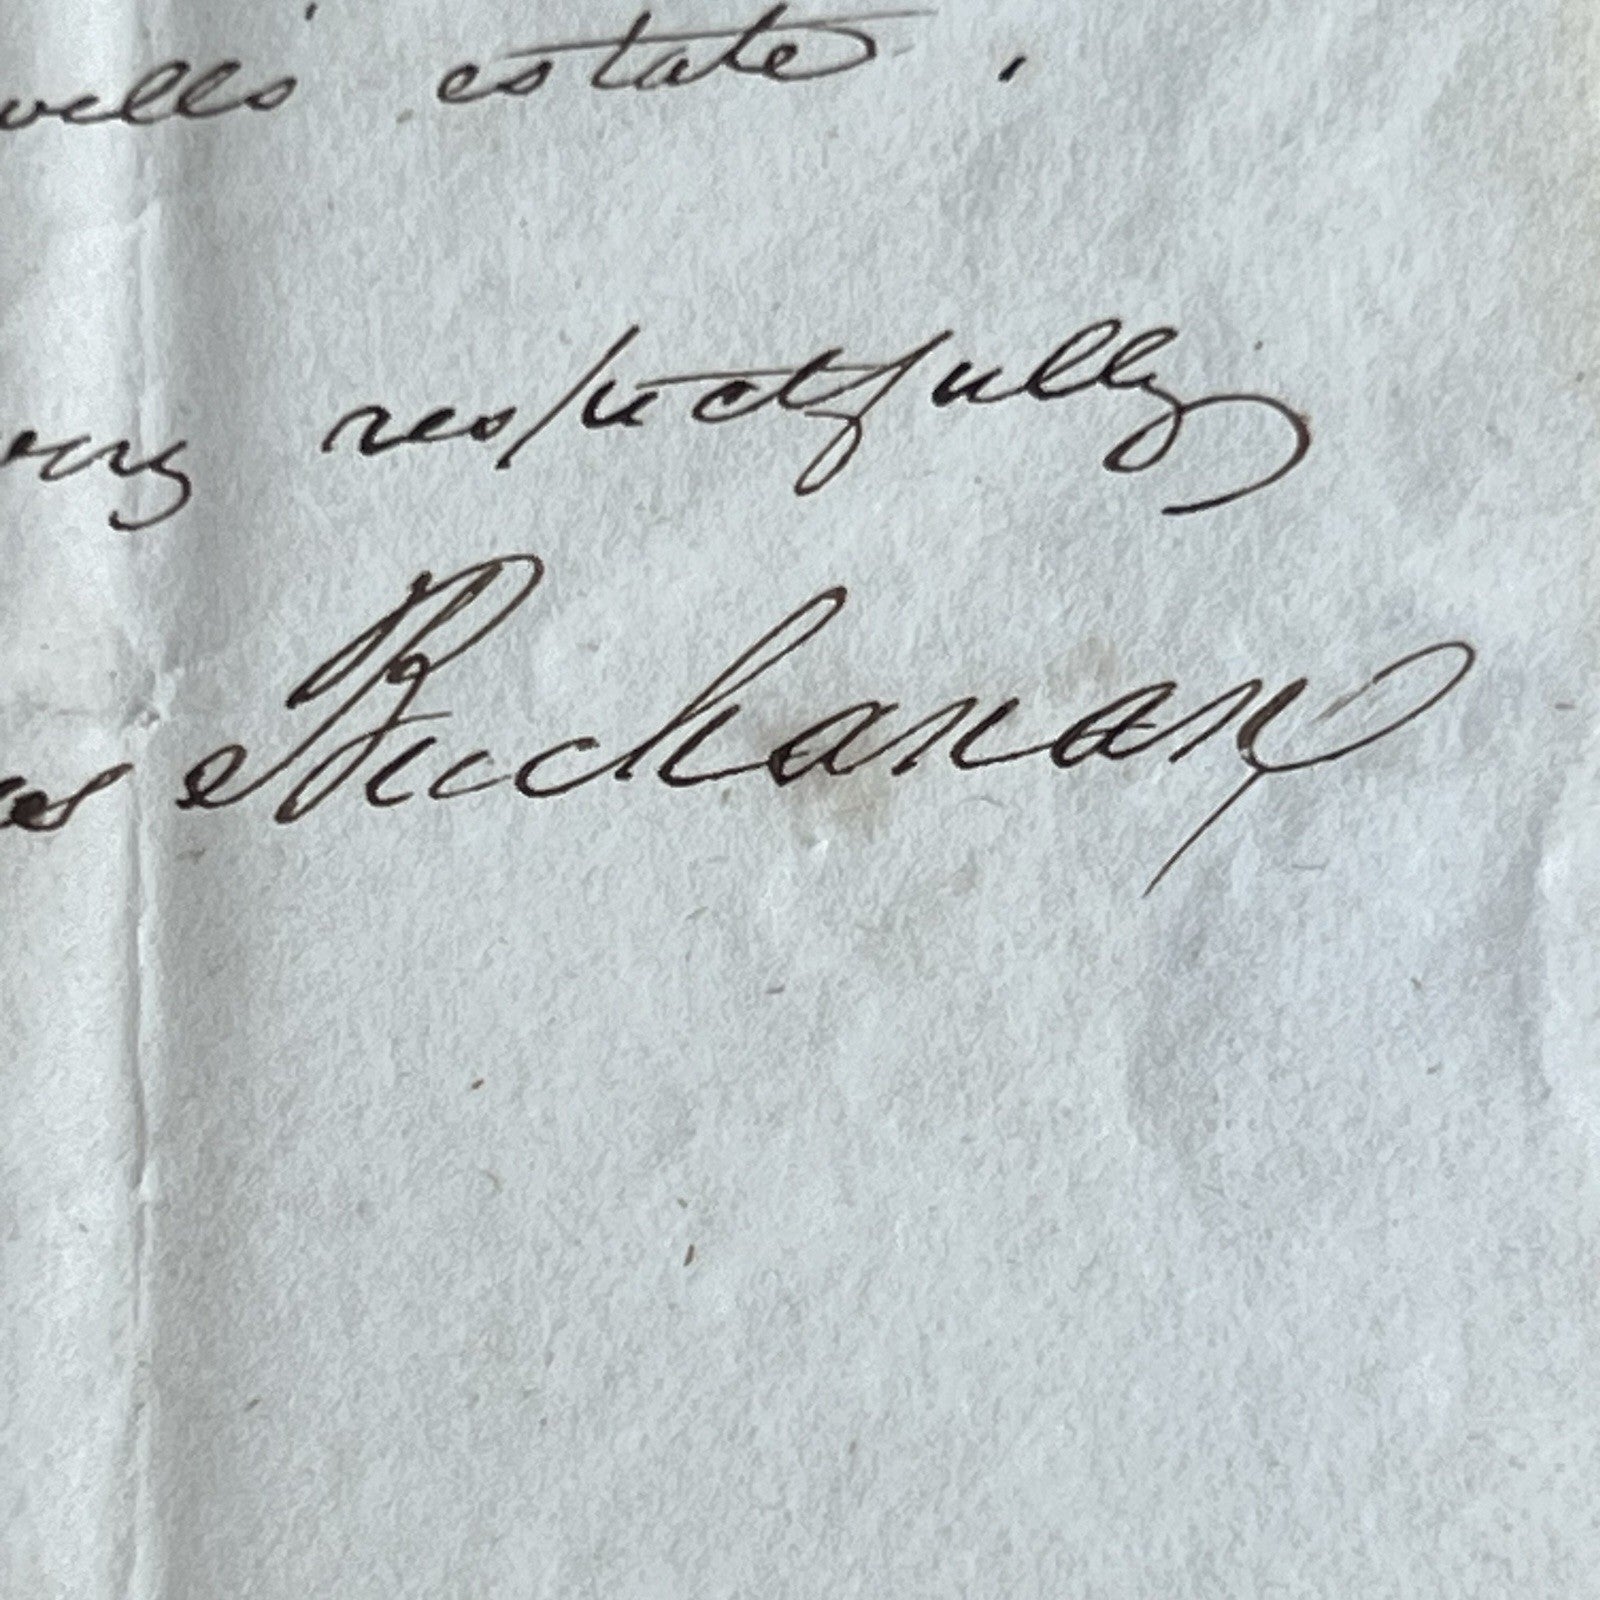 wells' estate.
very respectfully
es Buchanan